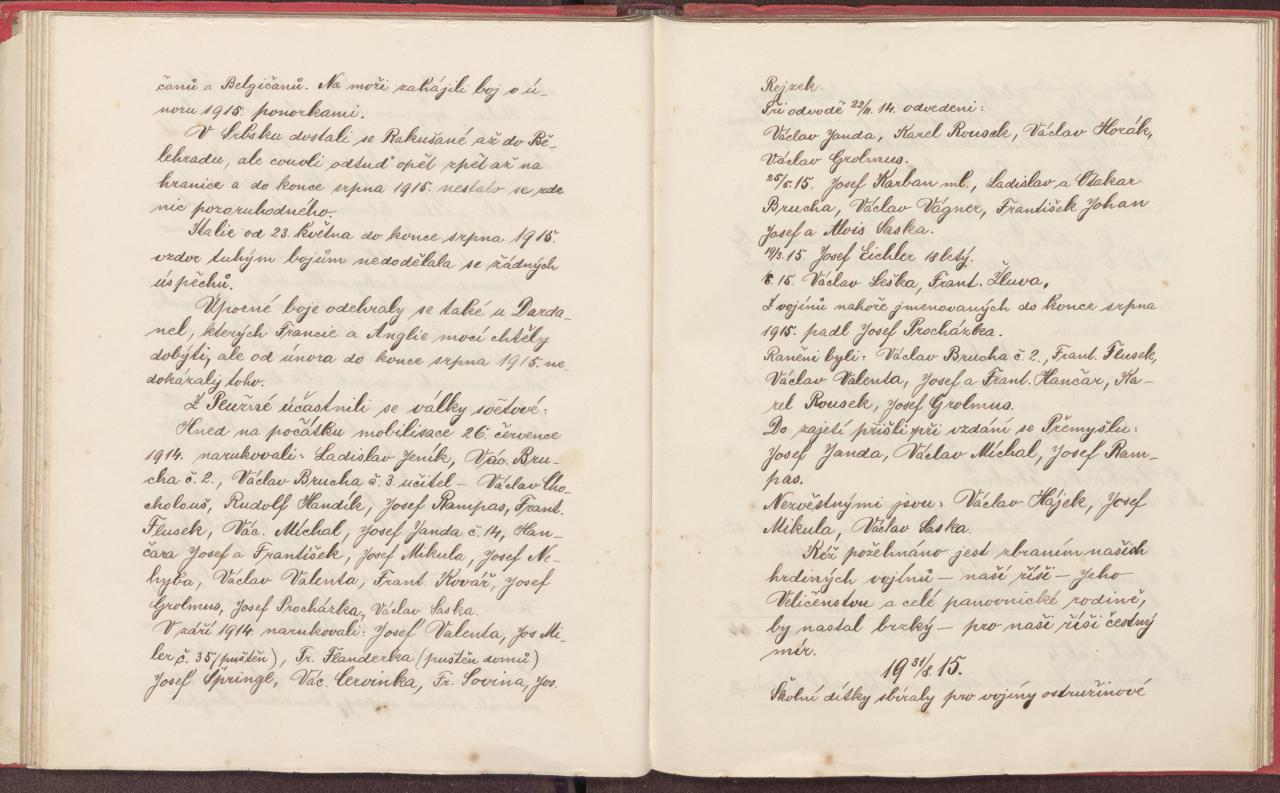 čanů a Belgičanů. Na moři zahájili boj v ú-
noru 1915. ponorkami.
V Srbsku dostali se Rakušané až do Bě-
lehradu, ale couvli odtud opět zpět až na
hranice a do konce srpna 1915. nestalo se zde
nic pozoruhodného.
Italie od 23. května do konce srpna 1915.
vzdor tuhým bojům nedodělala se žádných
úspěchů.
Úporné boje odehrály se také u Darda-
nel, kterých Francie a Anglie mocí chtěly
dobýti, ale od února do konce srpna 1915. ne-
dokázaly toho.
Z Plužné účastnili se války světové:
Hned na počátku mobilisace 26. července
1914. narukovali: Ladislav Jeník, Vác. Bru-
cha č. 2., Václav Brucha č. 3. učitel – Václav Cho-
cholouš, Rudolf Handík, Josef Rampas, Frant.
Flusek, Vác. Míchal, Josef Janda č. 14, Han-
čara Josef a František, Josef Mikula, Josef Ne-
hyba, Václav Valenta, Frant. Kovář, Josef
Grolmus, Josef Procházka, Václav Saska.
V září 1914. narukovali: Josef Valenta, Jos Mi-
ler č. 35 (puštěn), Fr. Flanderka (puštěn domů)
Josef Špringl, Vác. Červinka, Fr. Sovina, Jos.
Rejzek.
Při odvodě 14. odvedeni:
Václav Janda, Karel Rousek, Václav Horák,
Václav Grolmus.
25/5. 15. Josef Karban ml., Ladislav a Otakar
Brucha, Václav Vágner, František Johan
Josef a Alois Saska.
15 Josef Eichler 18letý.
15. Václav Leška, Frant. Žluva.
Z vojínů nahoře jmenovaných do konce srpna
1915. padl Josef Procházka.
Raněni byli: Václav Brucha č. 2., Frant. Flusek,
Václav Valenta, Josef a Frant. Hančar, Ka-
rel Rousek, Josef Grolmus.
Do zajetí přišli při vzdání se Přemyšlu:
Josef Janda, Václav Míchal, Josef Ram-
pas.
Nezvěstnými jsou: Václav Hájek, Josef
Mikula, Václav Saska.
Kéž požehnáno jest zbraním našich
hrdiných vojínů – naší říši – Jeho
Veličenstvu a celé panovnické rodině,
by nastal brzký – pro naši říši čestný
mír.
19 31/8. 15.
Školní dítky sbíraly pro vojíny ostružinové